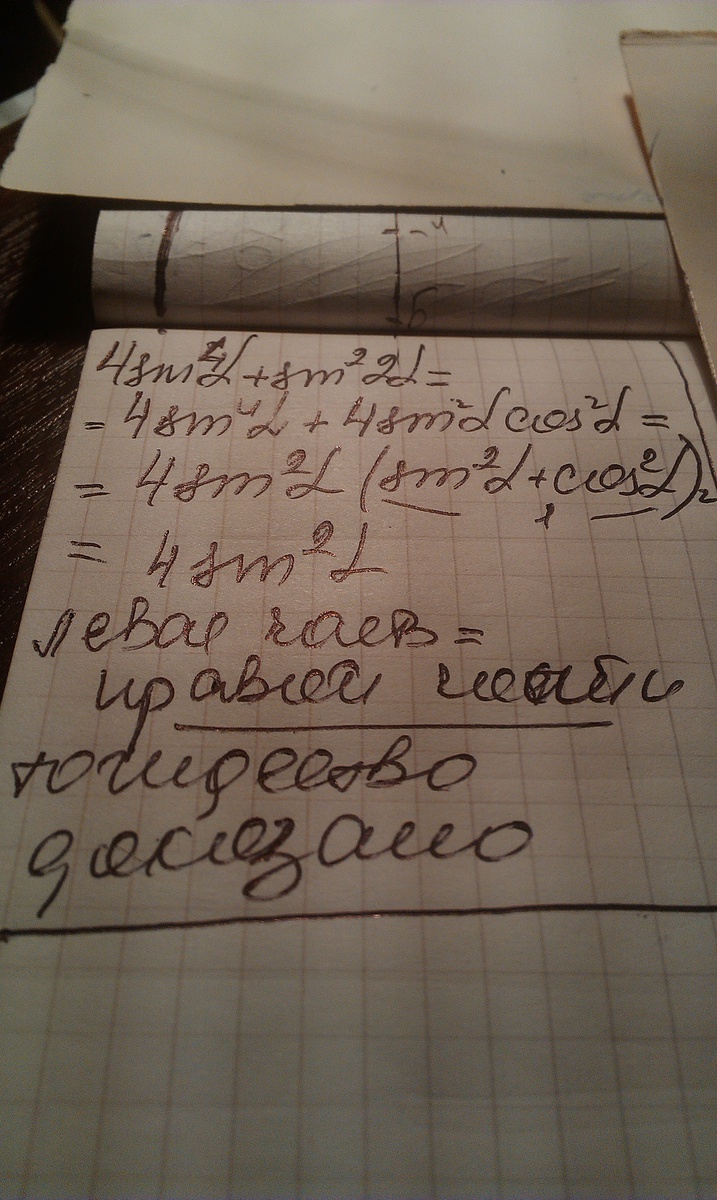 -4
5
4sin⁴α+sin²2α=
= 4sin⁴α + 4sin²α cos²α =
= 4sin²α (sin²α+cos²α)=
1
= 4sin²α
левая часть =
правой части
тождество
доказано